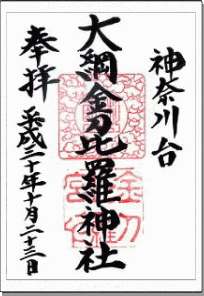 神奈川台
大綱金刀比羅神社
奉拝
平成二十年十月二十三日